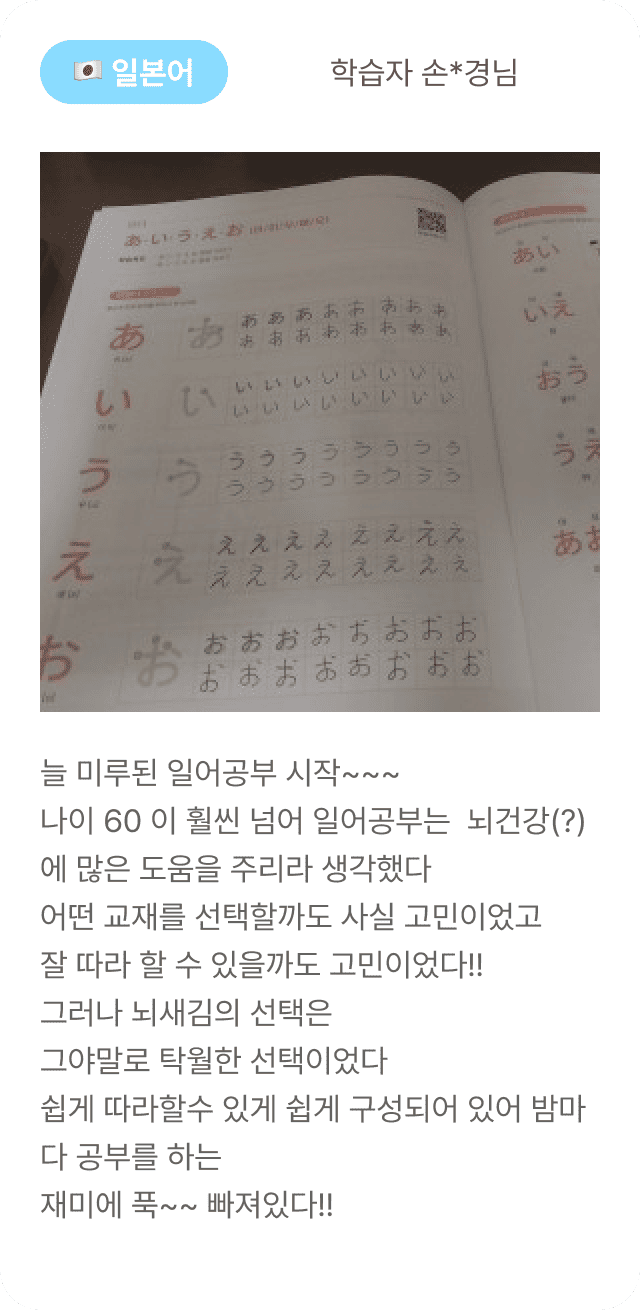 일본어
학습자 손*경님
あ·い·う·え·お
あ あ あ あ あ あ あ あ あ あ
あ あ あ あ あ あ あ あ
い い い い い い い い い い
い い い い い い い い
う う う う う う う う う う
う う う う う う う う
え え え え え え え え え え
え え え え え え え え
お お お お お お お お お お
お お お お お お お お
あい
いえ
おう
うえ
あお
늘 미루된 일어공부 시작~~~
나이 60 이 훨씬 넘어 일어공부는  뇌건강(?)
에 많은 도움을 주리라 생각했다
어떤 교재를 선택할까도 사실 고민이었고
잘 따라 할 수 있을까도 고민이었다!!
그러나 뇌새김의 선택은
그야말로 탁월한 선택이었다
쉽게 따라할수 있게 쉽게 구성되어 있어 밤마
다 공부를 하는
재미에 푹~~ 빠져있다!!